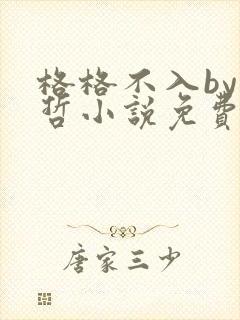 格格不入by
哲小說免費
唐家三少